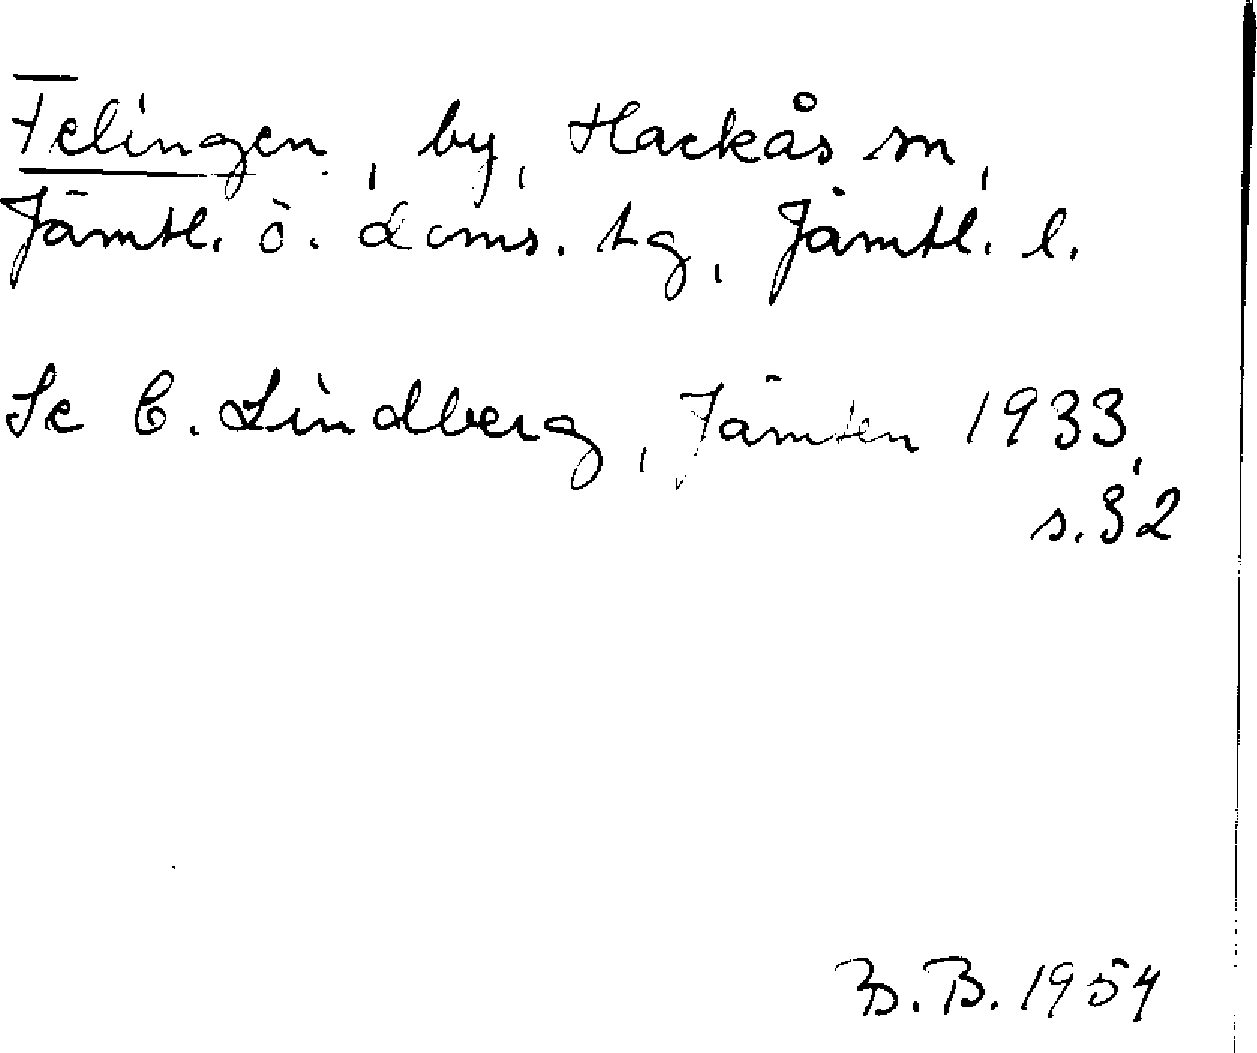 Felingen, by, Hackås sn,
Jämtl. ö. doms. tg, Jämtl. l.
Se C. Lindberg, Jämten 1933,
s. 32
B. B. 1954